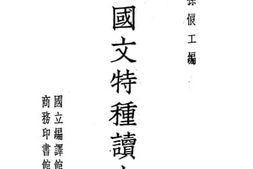 孫俍工編
國文特種讀
國立編譯館
商務印書館